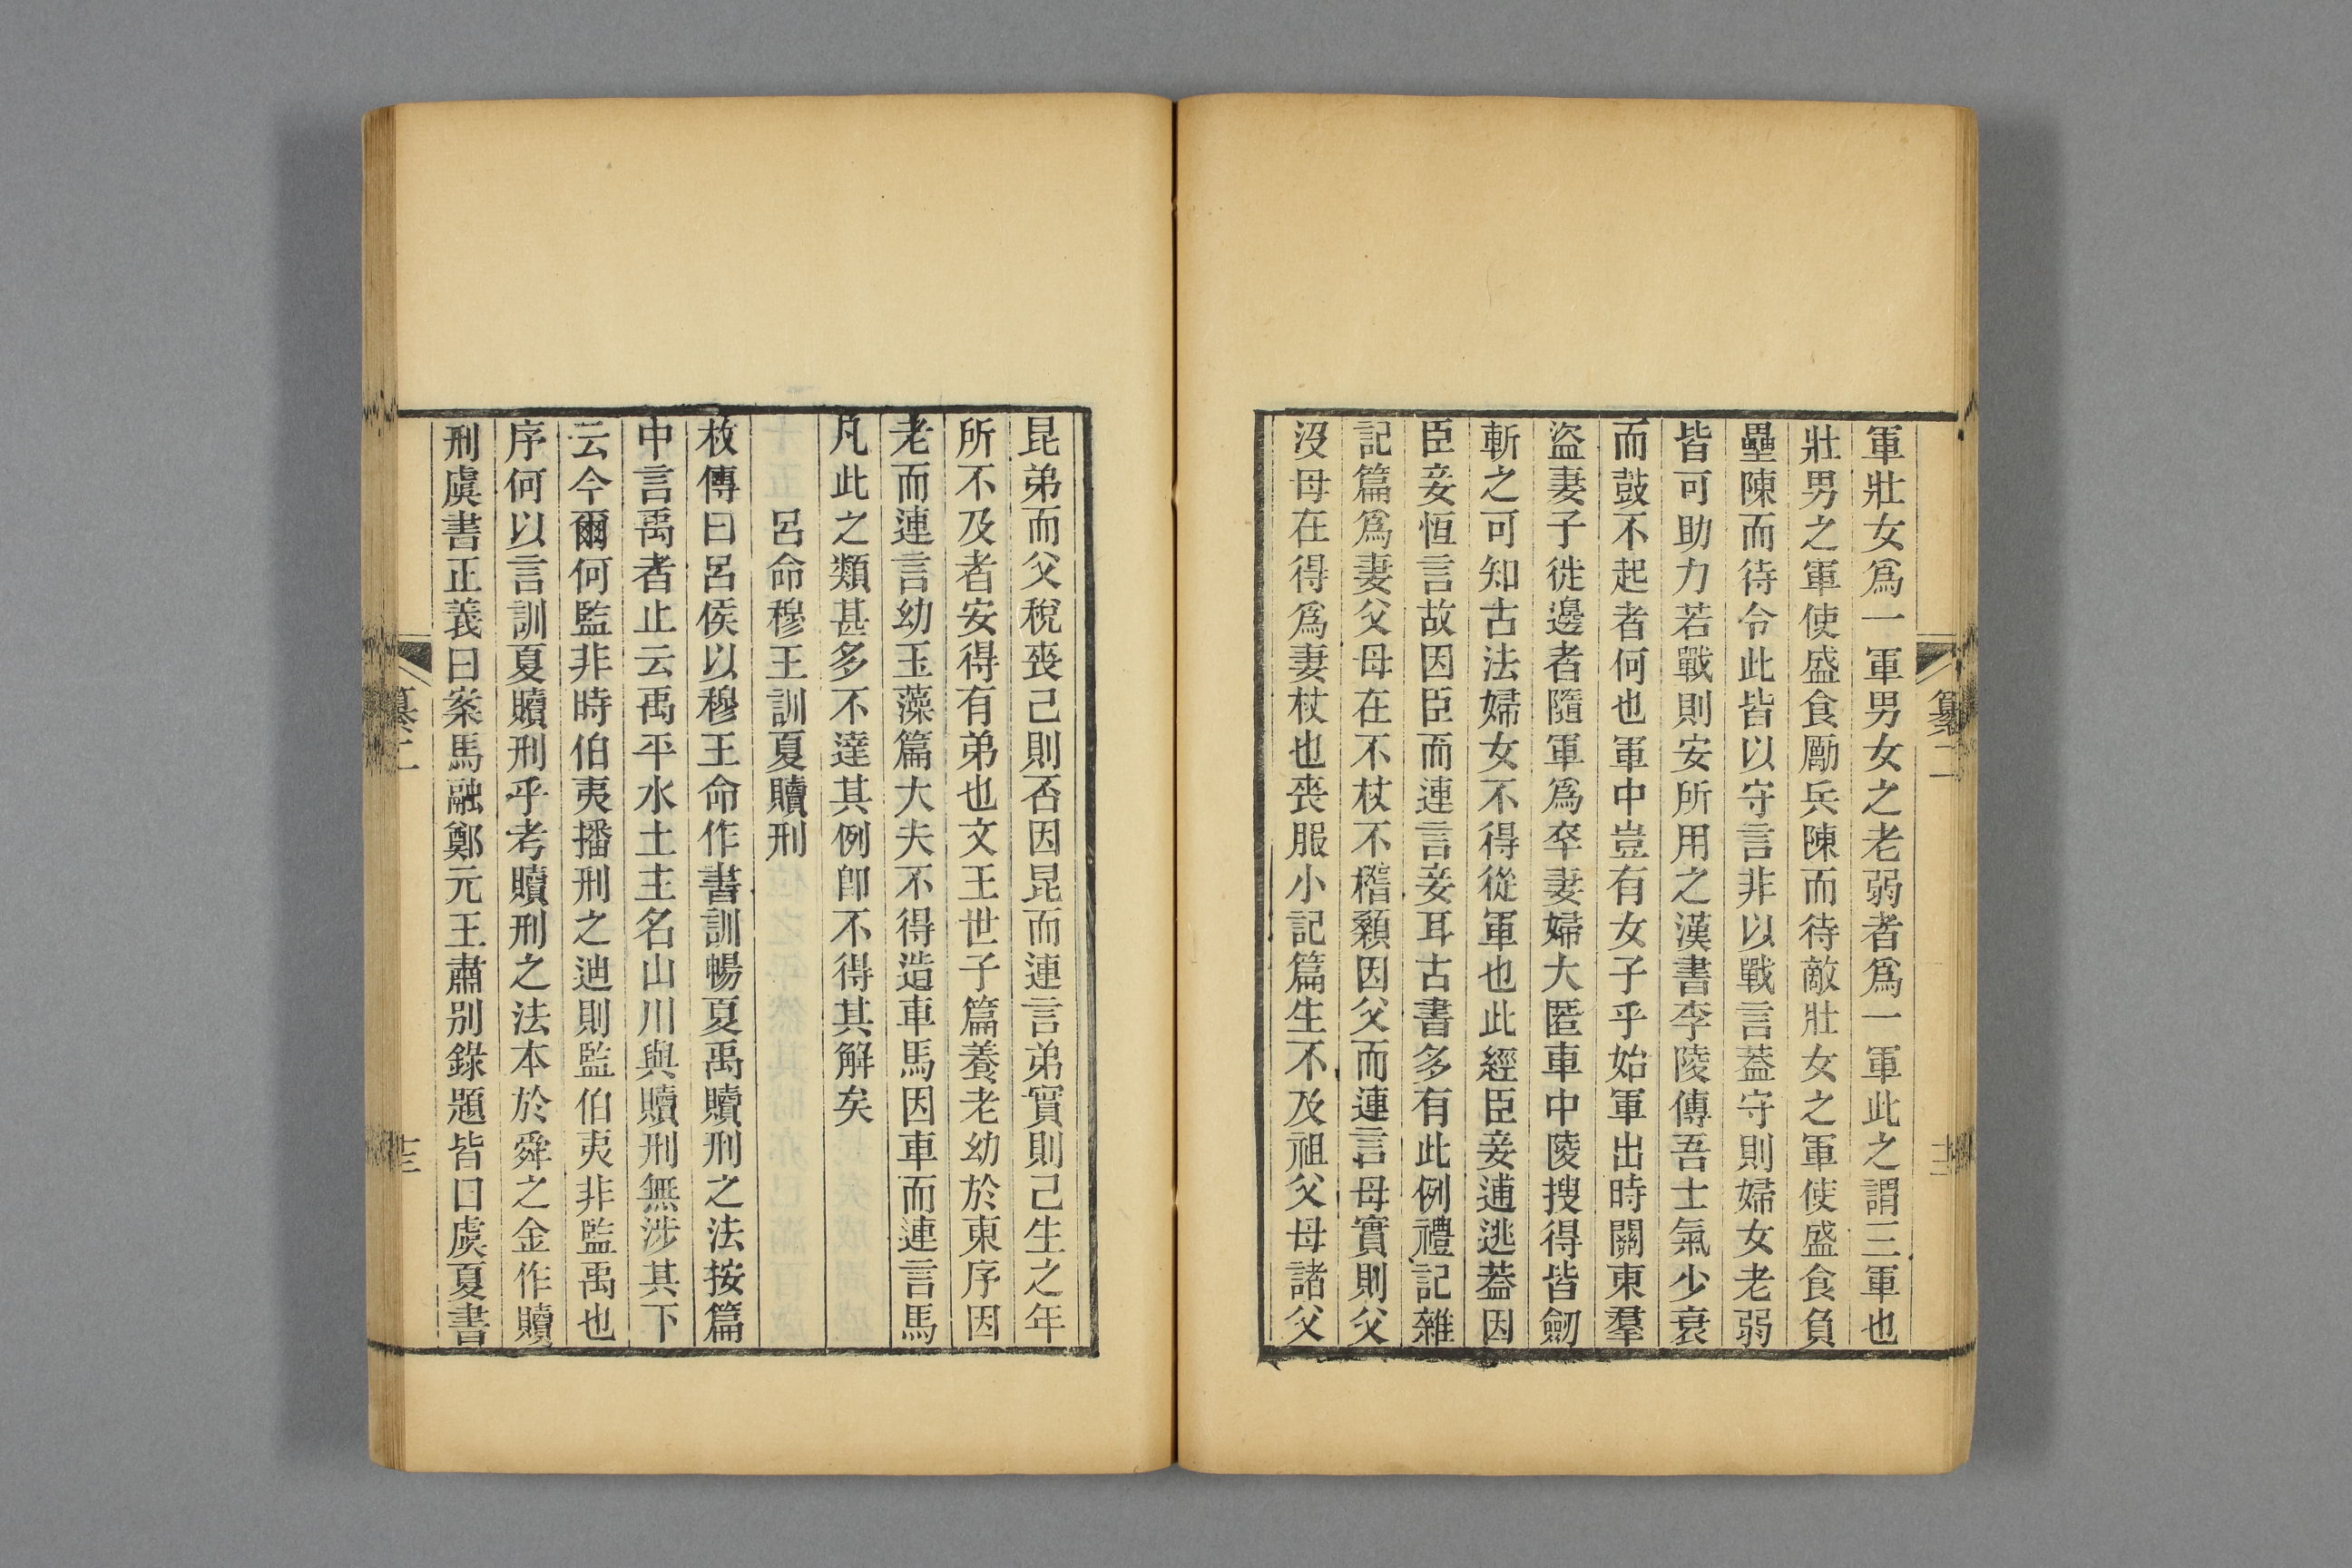 軍壯女爲一軍男女之老弱者爲一軍此之謂三軍也
壯男之軍使盛食厲兵陳而待敵壯女之軍使盛食負
壘陳而待令此皆以守言非以戰言葢守則婦女老弱
皆可助力若戰則安所用之漢書李陵傳吾士氣少衰
而鼓不起者何也軍中豈有女子乎始軍出時關東羣
盜妻子徙邊者隨軍爲卒妻婦大匿車中陵搜得皆劒
斬之可知古法婦女不得從軍也此經臣妾逋逃葢因
臣妾恒言故因臣而連言妾耳古書多有此例禮記雜
記篇爲妻父母在不杖不稽顙因父而連言母實則父
沒母在得爲妻杖也喪服小記篇生不及祖父母諸父
昆弟而父稅喪己則否因昆而連言弟實則己生之年
所不及者安得有弟也文王世子篇養老幼於東序因
老而連言幼玉藻篇大夫不得造車馬因車而連言馬
凡此之類甚多不達其例卽不得其解矣
呂命穆王訓夏贖刑
枚傳曰呂侯以穆王命作書訓暢夏禹贖刑之法按篇
中言禹者止云禹平水土主名山川與贖刑無涉其下
云今爾何監非時伯夷播刑之迪則監伯夷非監禹也
序何以言訓夏贖刑乎考贖刑之法本於舜之金作贖
刑虞書正義曰案馬融鄭元王肅別錄題皆曰虞夏書
纂二
十三